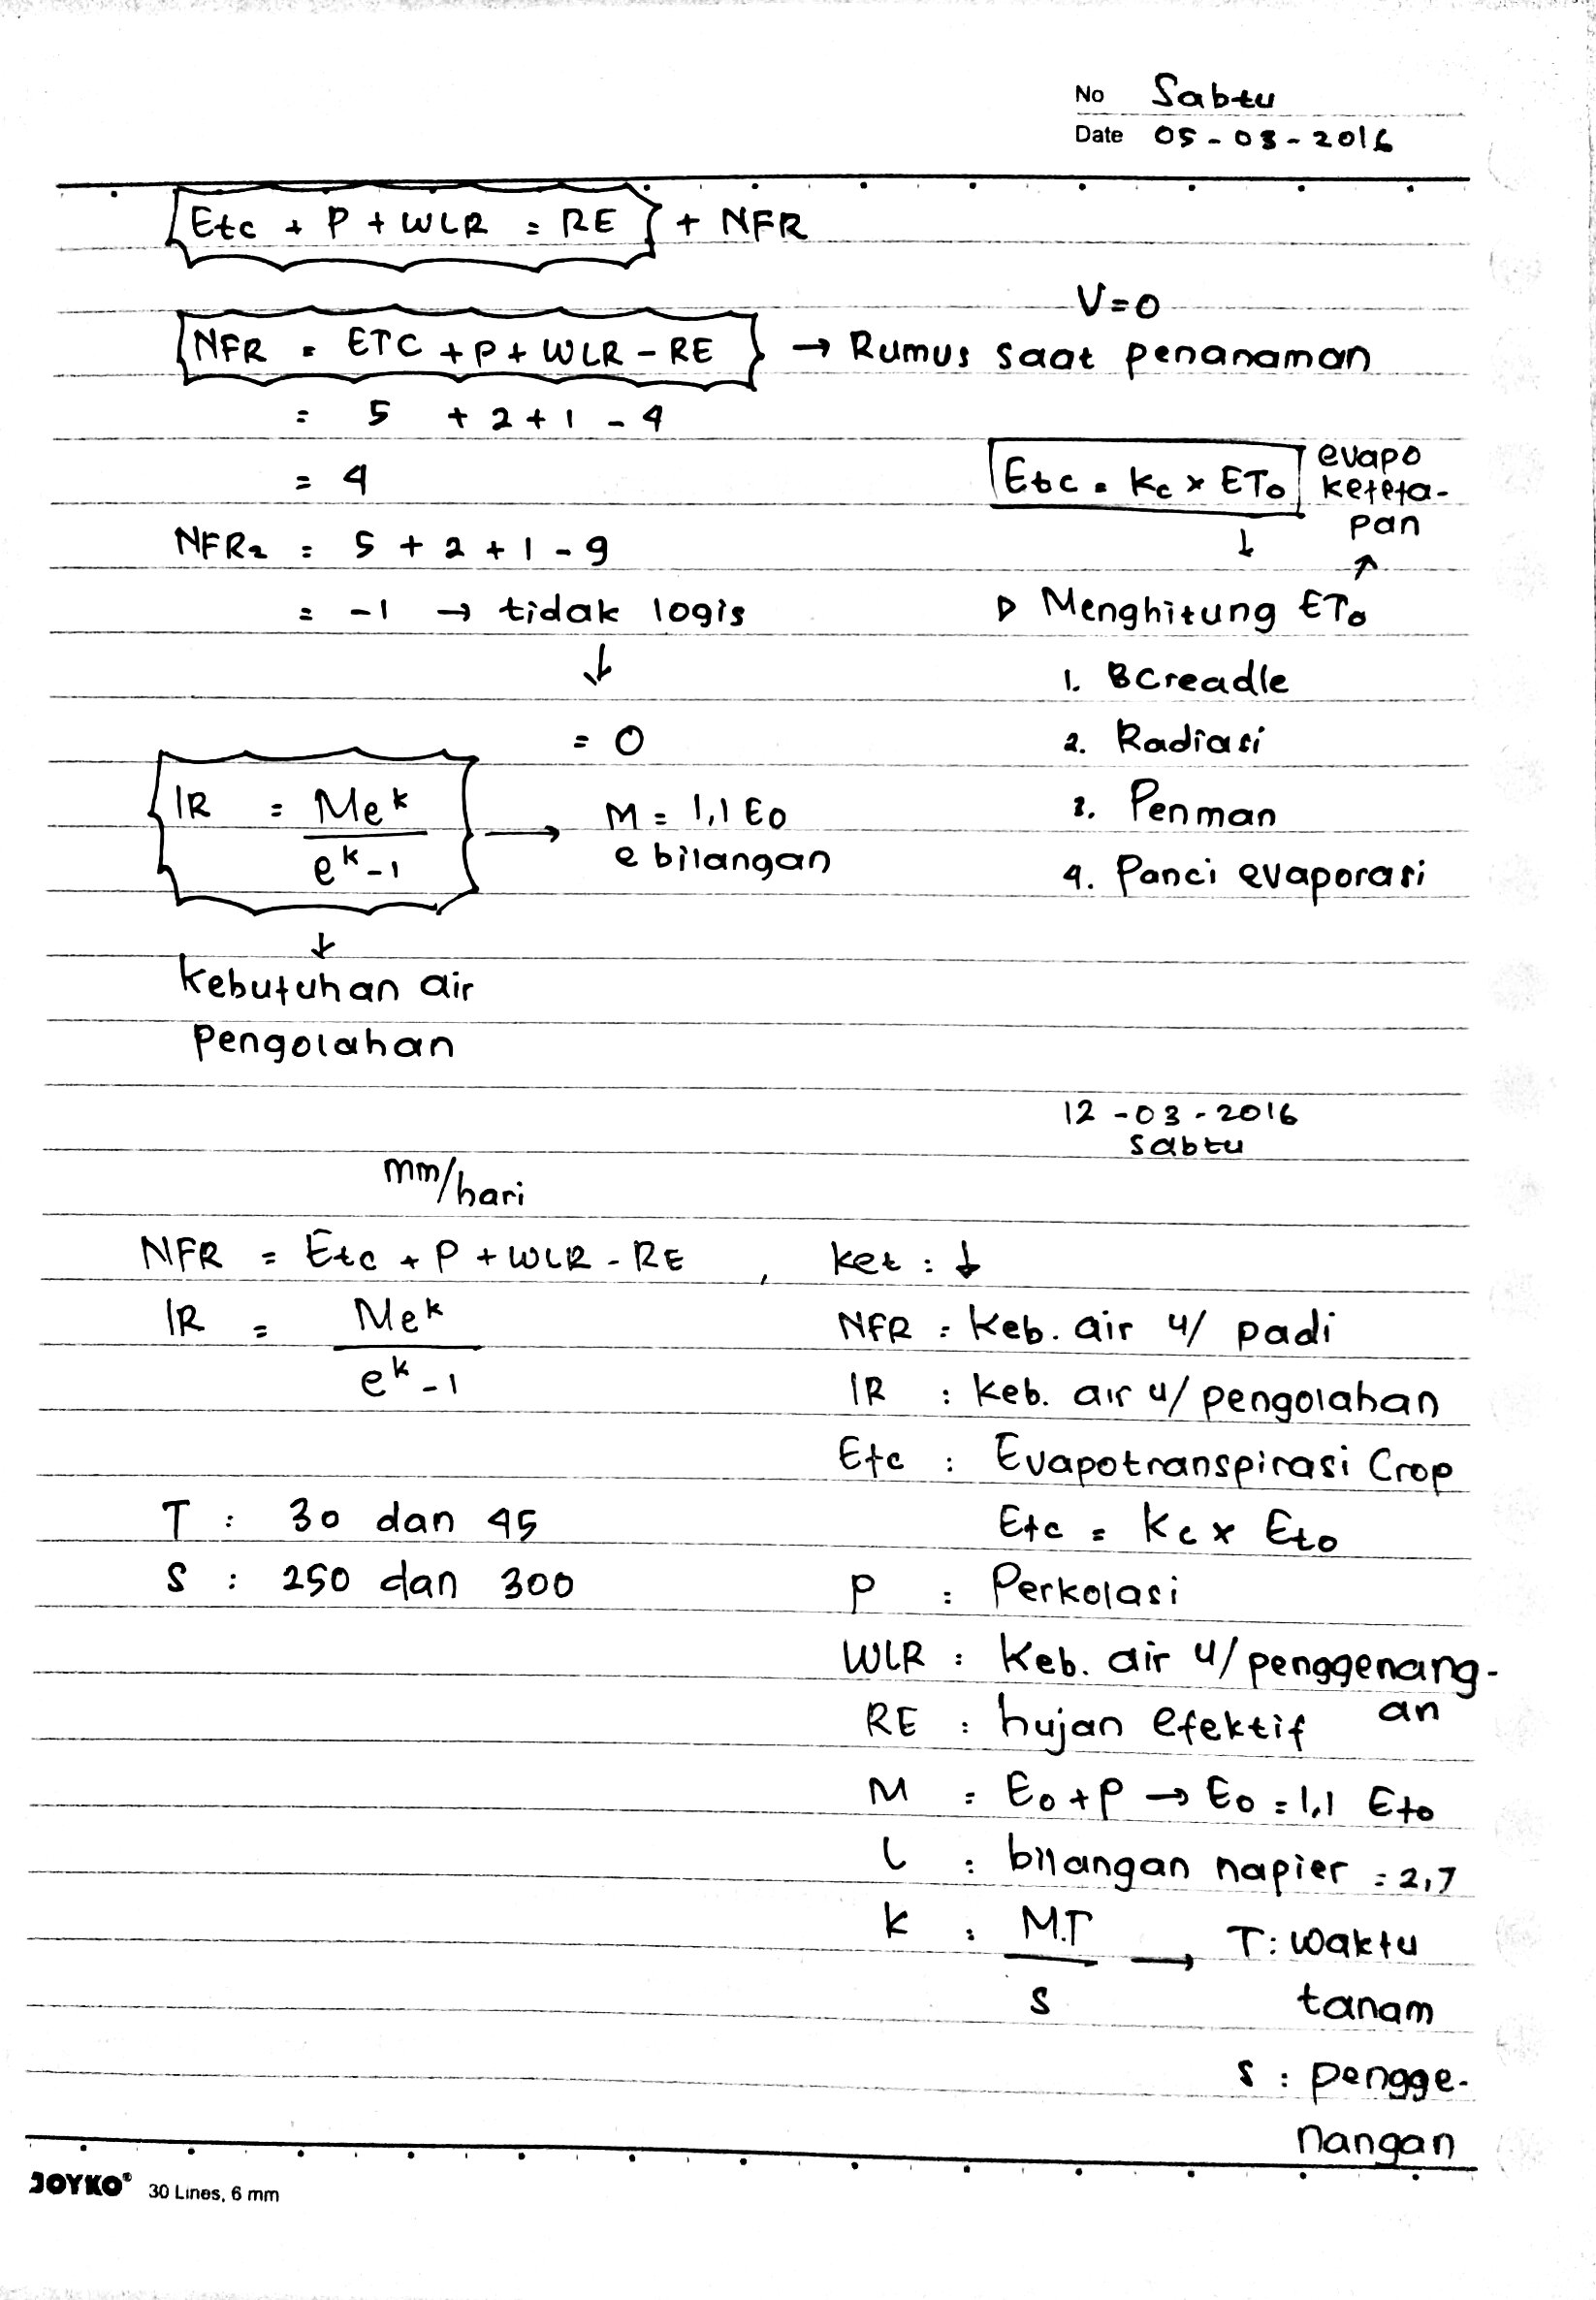 No Sabtu
Date 05-03-2016
Etc + P + WLR = RE + NFR
V=0
NFR = ETC + P + WLR - RE → Rumus saat penanaman
= 5 + 2 + 1 - 4
= 4
Etc = Kc x ETo
evapo
keteta-
pan
NFR2 = 5 + 2 + 1 - 9
= -1 → tidak logis
↓
= 0
▷ Menghitung ETo
1. BCreadle
2. Radiasi
3. Penman
4. Panci evaporasi
IR = Me^k / e^k - 1
→ M = 1,1 Eo
e bilangan
↓
Kebutuhan air
Pengolahan
12-03-2016
Sabtu
mm/hari
NFR = Etc + P + WLR - RE , ket : ↓
IR = Me^k / e^k - 1
T : 30 dan 45
S : 250 dan 300
NFR : Keb. air u/ padi
IR : Keb. air u/ pengolahan
Etc : Evapotranspirasi Crop
Etc = Kc x Eto
P : Perkolasi
WLR : Keb. air u/ penggenang-
an
RE : hujan efektif
M = Eo + P → Eo = 1,1 Eto
l : bilangan napier = 2,7
k : M.T / S → T : Waktu
tanam
S : pengge-
nangan
JOYKO® 30 Lines, 6 mm